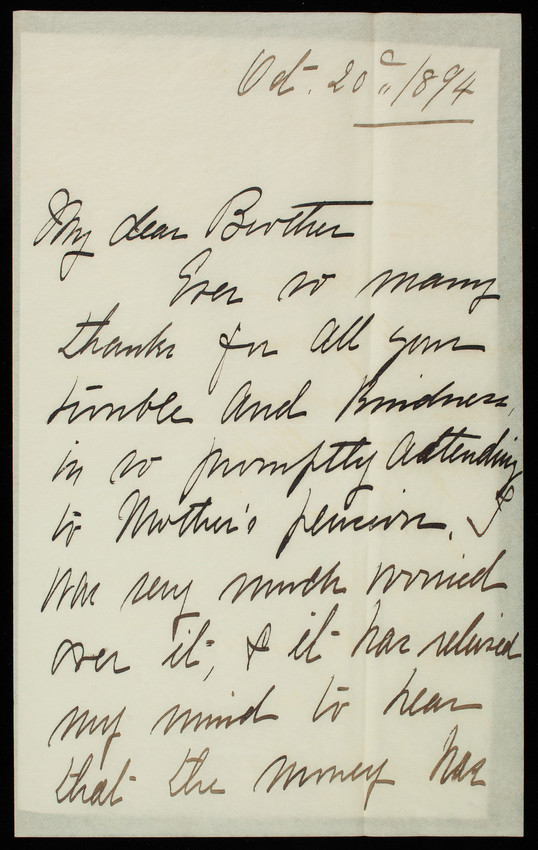 Oct. 20th 1894
My dear Brother
Ever so many
thanks for all your
trouble and kindness,
in so promptly attending
to Mother's pension. I
was very much worried
over it, & it has relieved
my mind to hear
that the money has